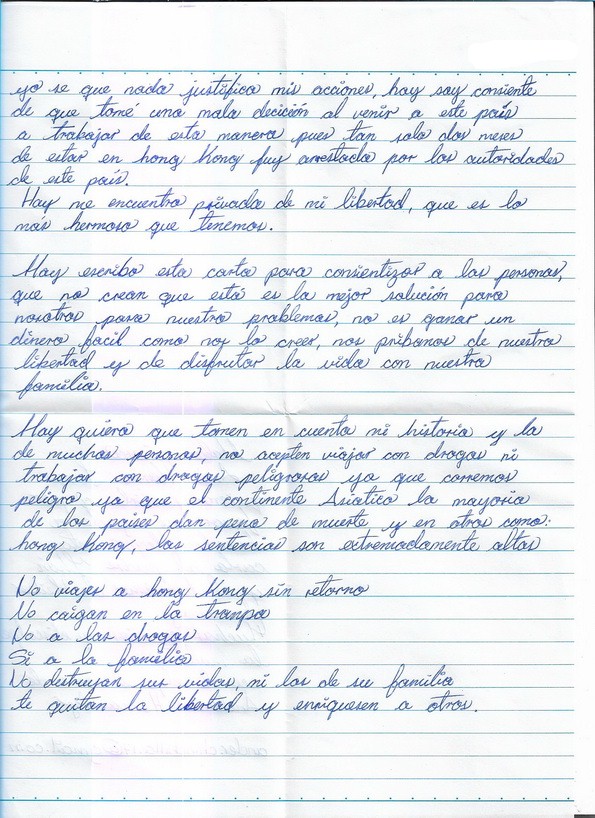 yo se que nada justifica mis acciones, hoy soy consiente
de que tomé una mala decición al venir a este país
a trabajar de esta manera pues tan solo dos meses
de estar en hong Kong fuy arrestada por las autoridades
de este país.
Hoy me encuentro privada de mi libertad, que es lo
más hermoso que tenemos.
Hoy escribo esta carta para consientizar a las personas,
que no crean que está es la mejor solución para
nosotros para nuestro problemas, no es ganar un
dinero facil como nos lo creer, nos pribamos de nuestra
libertad y de disfrutar la vida con nuestra
familia.
Hoy quiero que tomen en cuenta mi historia y la
de muchas personas, no acepten viajar con drogas ni
trabajar con drogas peligrosas ya que corremos
peligro ya que el continente Asiatico la mayoria
de los paises dan pena de muerte y en otros como:
hong Kong, las sentencias son extremadamente altas
No viajes a hong Kong sin retorno
No caigan en la trampa
No a las drogas
Si a la familia
No destruyan sus vidas, ni las de su familia
te quitan la libertad y enriquesen a otros.